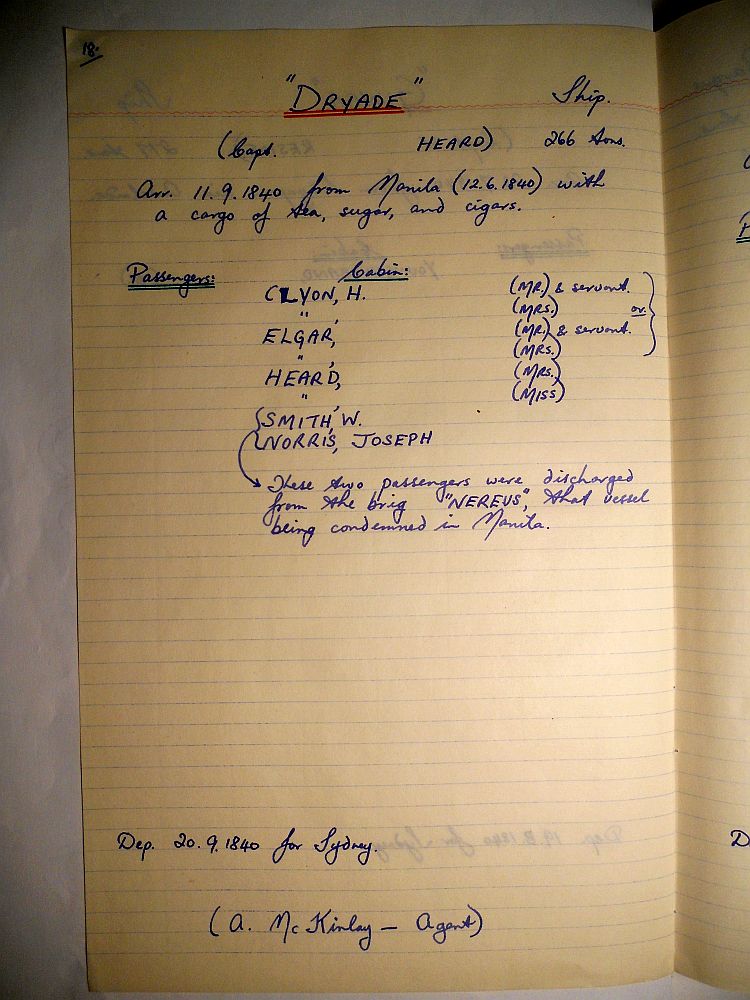 18.
"DRYADE" Ship.
(Capt. HEARD) 266 tons.
Arr. 11.9.1840 from Manila (12.6.1840) with
a cargo of tea, sugar, and cigars.
Passengers: Cabin:
CLYON, H. (MR.) & servant.
" , (MRS.) or
ELGAR, (MR.) & servant.
" , (MRS.)
HEARD, (MRS.)
" , (MISS)
SMITH, W.
NORRIS, JOSEPH
These two passengers were discharged
from the brig "NEREUS", that vessel
being condemned in Manila.
Dep. 20.9.1840 for Sydney.
(A. McKinlay — Agent)